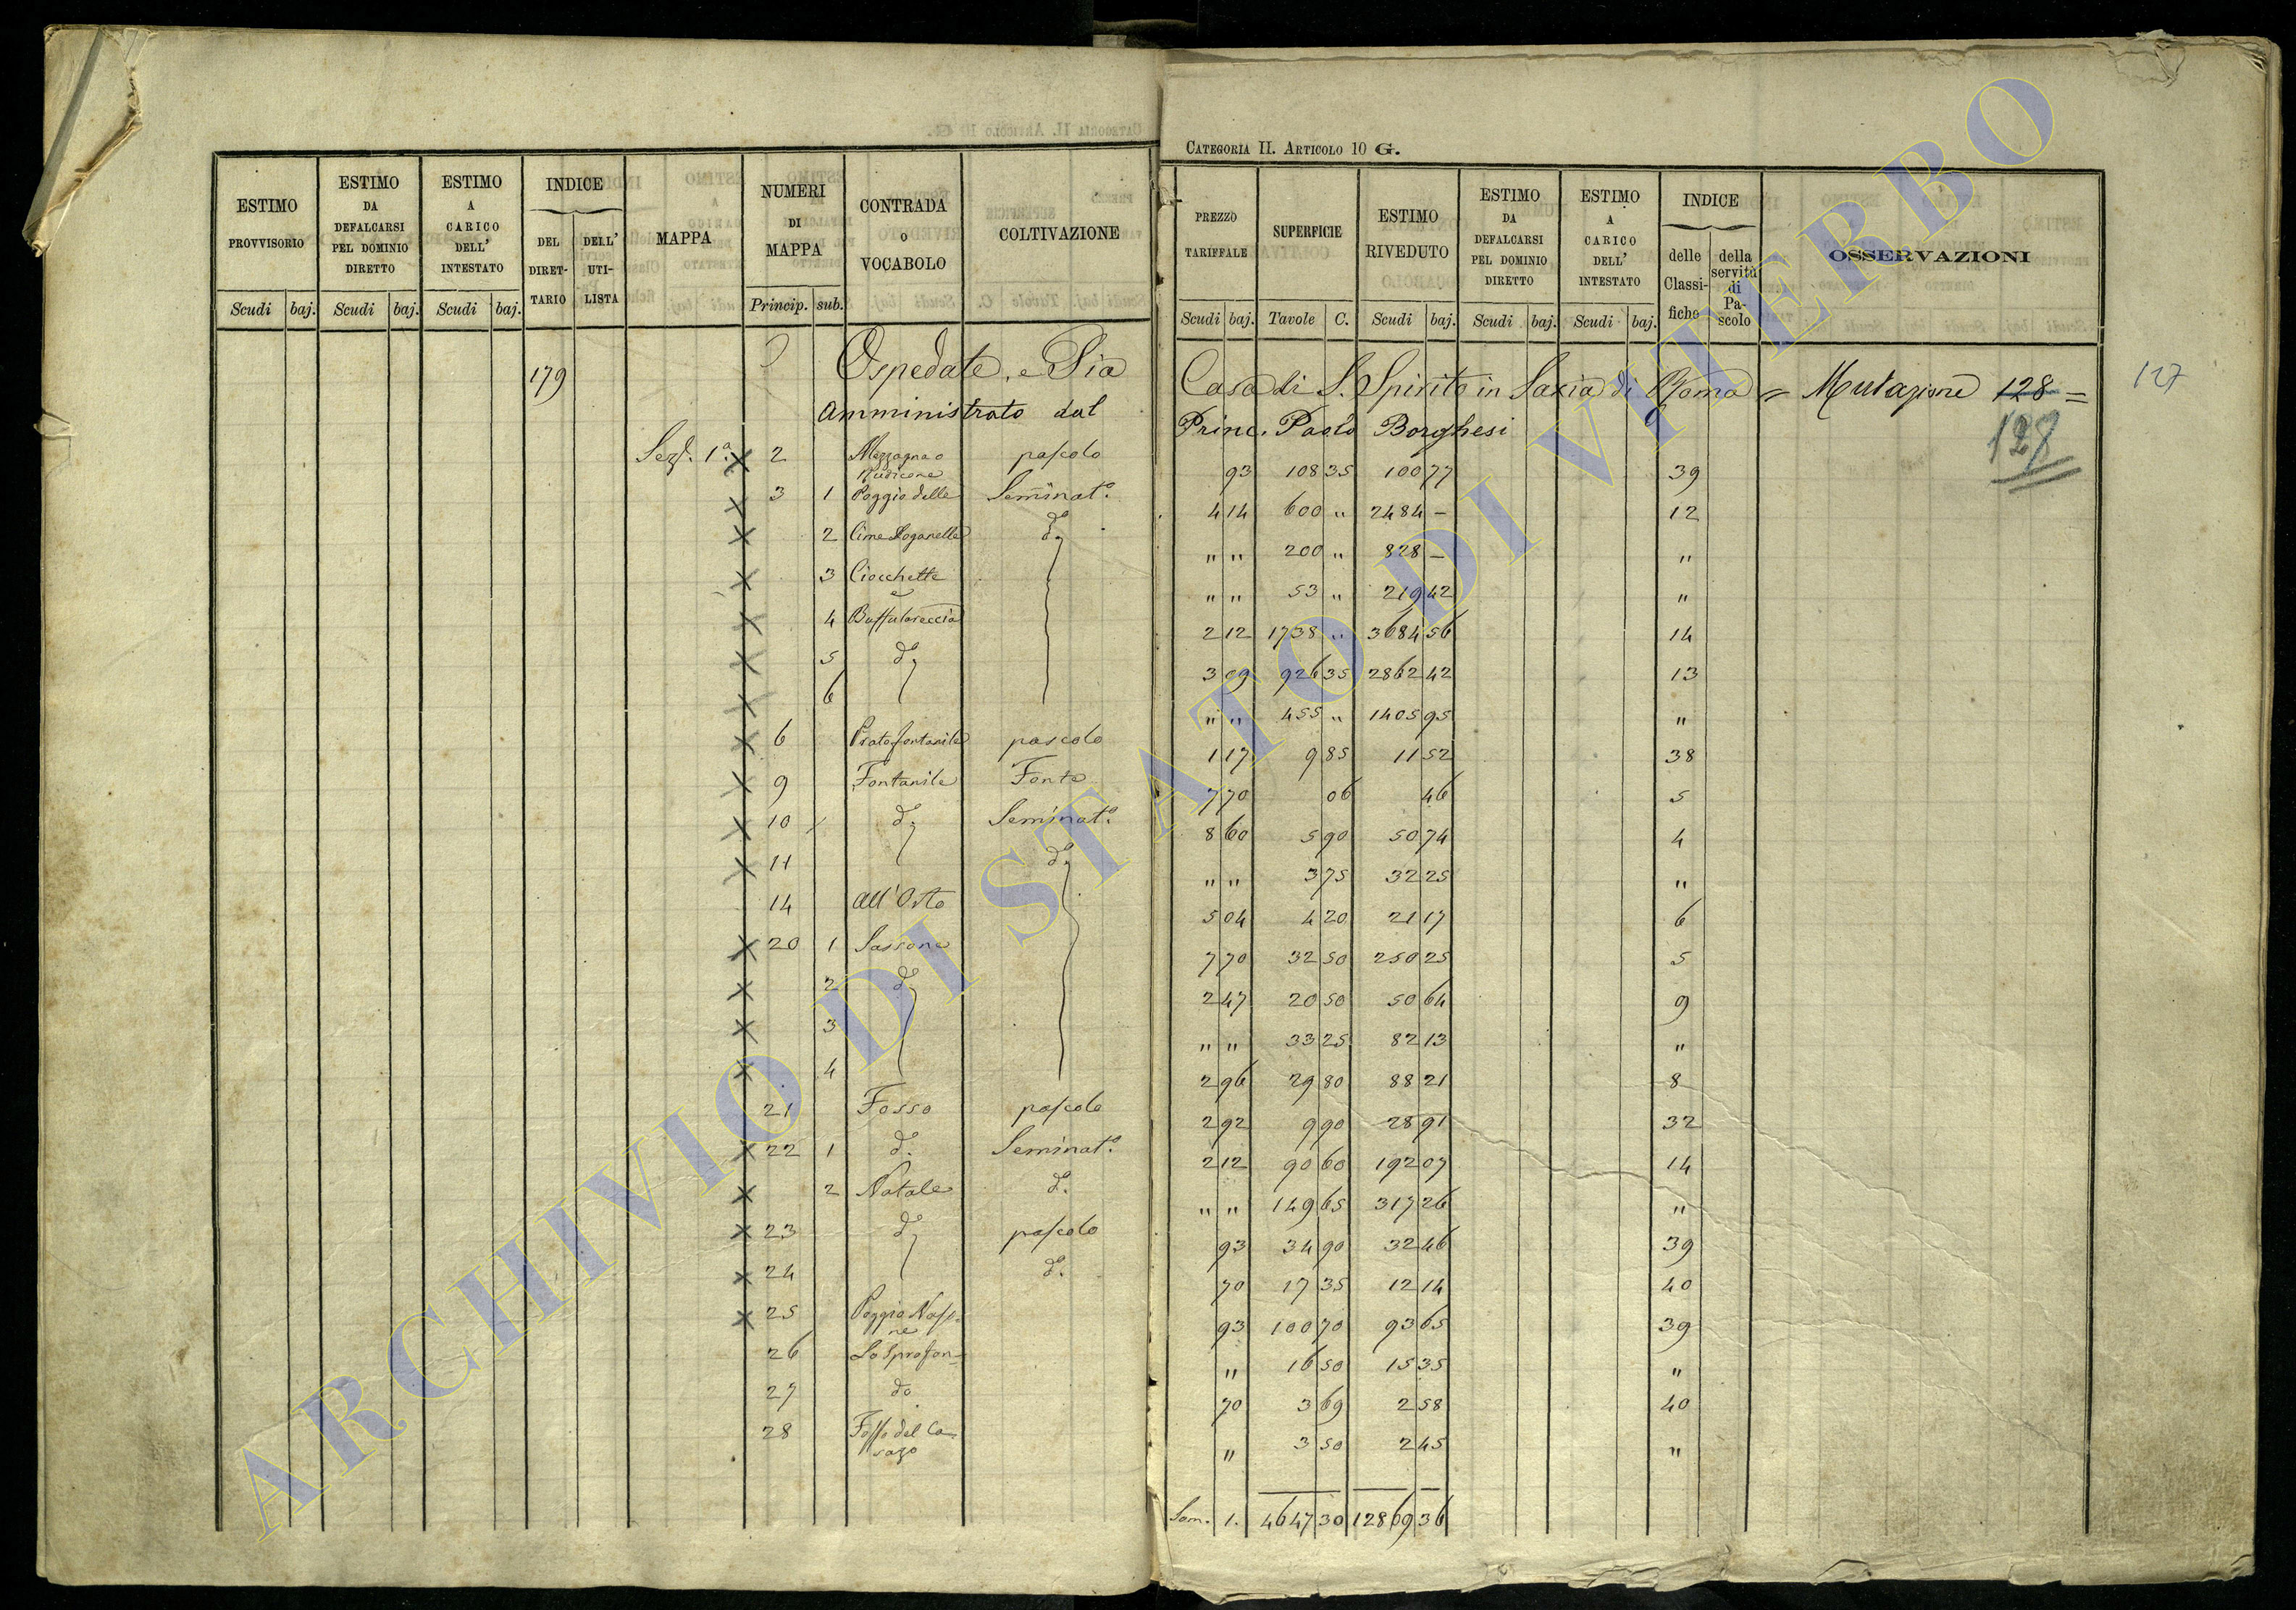 CATEGORIA II. ARTICOLO 10 G.
ESTIMO PROVVISORIO | ESTIMO DA DEFALCARSI PEL DOMINIO DIRETTO | ESTIMO A CARICO DELL' INTESTATO | INDICE DEL DIRETTARIO | DELL' UTILISTA | MAPPA | NUMERI DI MAPPA | CONTRADA O VOCABOLO | COLTIVAZIONE | PREZZO TARIFFALE | SUPERFICIE | ESTIMO RIVEDUTO | ESTIMO DA DEFALCARSI PEL DOMINIO DIRETTO | ESTIMO A CARICO DELL' INTESTATO | INDICE delle Classifiche | della servitù di Pascolo | OSSERVAZIONI
Scudi | baj. | Scudi | baj. | Scudi | baj. | Princip. | sub. | Scudi | baj. | Tavole | C. | Scudi | baj. | Scudi | baj. | Scudi | baj.
179 Ospedale, e Pia Casa di S. Spirito in Saxia di Roma = Mutazione 128 = 127
Amministrato dal Princ. Paolo Borghesi 128
Sez. 1ª X 2 pascolo 93 108 35 100 77 39
X 3 1 Poggio delle Seminat.º 4 14 600 " 2484 - 12
X 2 Cime dº " " 200 " 828 - "
X 3 Ciocchette " " 53 " 219 42 "
X 4 Buffalareccia 2 12 1738 " 3684 56 14
X 5 dº 3 09 926 35 2862 42 13
X 6 " " 455 " 1405 95 "
X 6 Pratofontanile pascolo 1 17 9 85 11 52 38
X 9 Fontanile Fonte 7 70 06 46 5
X 10 dº Seminat.º 8 60 5 90 50 74 4
X 11 dº " " 3 75 32 25 "
14 All'Orto 5 04 4 20 21 17 6
X 20 1 Sassone 7 70 32 50 250 25 5
X 2 dº 2 47 20 50 50 64 9
X 3 " " 33 25 82 13 "
X 4 2 96 29 80 88 21 8
21 Fosso pascolo 2 92 9 90 28 91 32
X 22 1 dº Seminat.º 2 12 90 60 192 07 14
X 2 Natale dº " " 149 65 317 26 "
X 23 dº pascolo 93 34 90 32 46 39
X 24 dº 70 17 35 12 14 40
X 25 Poggio 93 100 70 93 65 39
26 " 16 50 15 35 "
27 do 70 3 69 2 58 40
28 Fosso del Casazo " 3 50 2 45 "
Som. 1. 4647 30 12869 36
ARCHIVIO DI STATO DI VITERBO